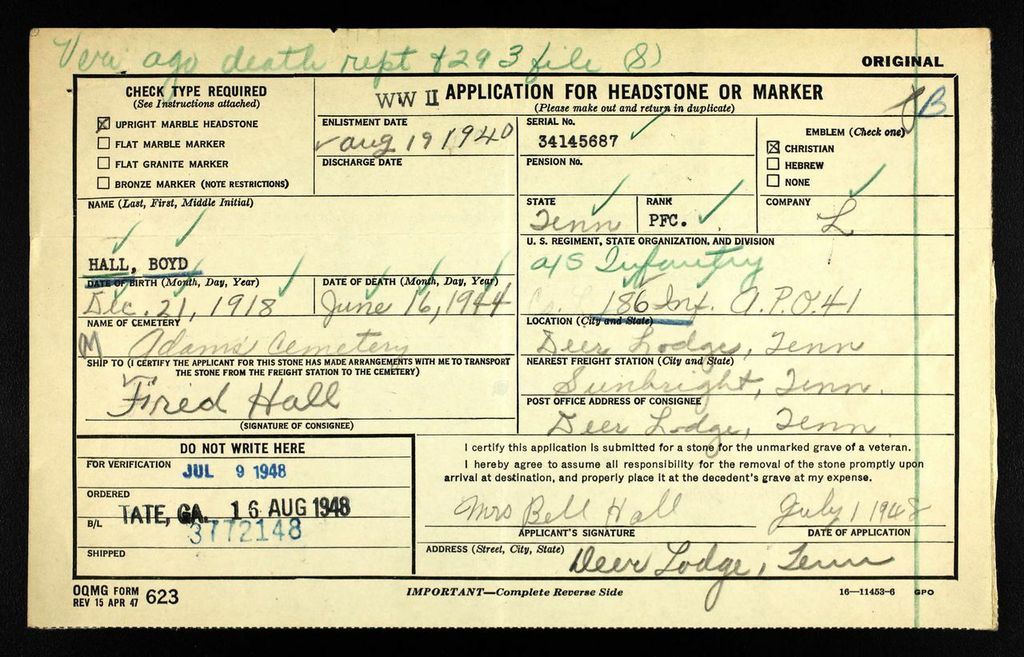 Veri ago death rept & 293 file (8)
ORIGINAL
CHECK TYPE REQUIRED
(See Instructions attached)
☒ UPRIGHT MARBLE HEADSTONE
☐ FLAT MARBLE MARKER
☐ FLAT GRANITE MARKER
☐ BRONZE MARKER (NOTE RESTRICTIONS)
WW II APPLICATION FOR HEADSTONE OR MARKER
(Please make out and return in duplicate)
B
ENLISTMENT DATE
Aug 19 1940
DISCHARGE DATE
SERIAL No.
34145687
PENSION No.
EMBLEM (Check one)
☒ CHRISTIAN
☐ HEBREW
☐ NONE
NAME (Last, First, Middle Initial)
HALL, BOYD
STATE
Tenn
RANK
PFC.
COMPANY
L
U. S. REGIMENT, STATE ORGANIZATION, AND DIVISION
a/S Infantry
186 Inf. A.P.O. 41
DATE OF BIRTH (Month, Day, Year)
Dec. 21, 1918
DATE OF DEATH (Month, Day, Year)
June 16, 1944
NAME OF CEMETERY
M Adams Cemetery
LOCATION (City and State)
Deer Lodge, Tenn
SHIP TO (I CERTIFY THE APPLICANT FOR THIS STONE HAS MADE ARRANGEMENTS WITH ME TO TRANSPORT
THE STONE FROM THE FREIGHT STATION TO THE CEMETERY)
Fred Hall
(SIGNATURE OF CONSIGNEE)
NEAREST FREIGHT STATION (City and State)
Sunbright, Tenn.
POST OFFICE ADDRESS OF CONSIGNEE
Deer Lodge, Tenn.
DO NOT WRITE HERE
FOR VERIFICATION JUL 9 1948
ORDERED
TATE, GA. 16 AUG 1948
B/L
3772148
SHIPPED
I certify this application is submitted for a stone for the unmarked grave of a veteran.
I hereby agree to assume all responsibility for the removal of the stone promptly upon
arrival at destination, and properly place it at the decedent's grave at my expense.
Mrs Bell Hall July 1 1948
APPLICANT'S SIGNATURE DATE OF APPLICATION
ADDRESS (Street, City, State) Deer Lodge, Tenn
OQMG FORM
REV 15 APR 47 623
IMPORTANT—Complete Reverse Side
16—11453-6 GPO